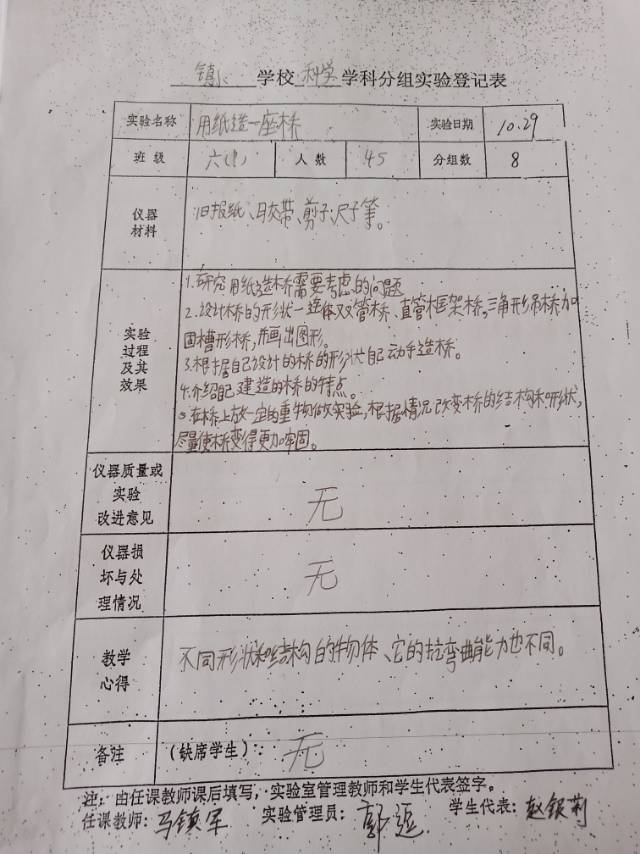 镇小学校科学学科分组实验登记表
实验名称 用纸造一座桥 实验日期 10.29
班级 六(1) 人数 45 分组数 8
仪器材料 旧报纸、胶带、剪子、尺子等。
实验过程及其效果
1.研究用纸造桥需要考虑的问题
2.设计桥的形状一连体双管桥、直管框架桥,三角形吊桥加
固槽形桥,并画出图形。
3.根据自己设计的桥的形状自己动手造桥。
4.介绍自己建造的桥的特点。
在桥上放一定的重物做实验,根据情况改变桥的结构和形状,
尽量使桥变得更加牢固。
仪器质量或实验改进意见 无
仪器损坏与处理情况 无
教学心得 不同形状和结构的物体、它的抗弯曲能力也不同。
备注 (缺席学生): 无
注:由任课教师课后填写,实验室管理教师和学生代表签字。
任课教师:马镇军 实验管理员:郭 学生代表:赵银莉